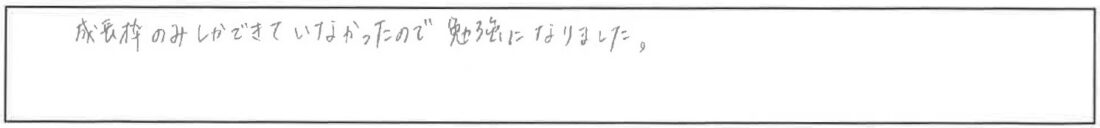 成長枠のみしかできていなかったので勉強になりました。